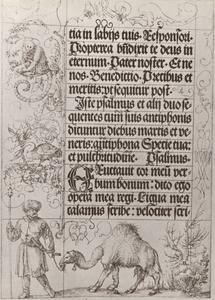 tia in labijs tuis. Responsori.
Propterea bñdixit te deus in
eternum. Pater noster. Et ne
nos. Benedictio. Precibus et
meritis: vt sequitur post.
Iste psalmus et alij duo se
quentes cum suis antiphonis
dicuntur diebus martis et ve
neris: antiphona Specie tua:
et pulchritudine. Psalmus.
Eructauit cor meū ver
bum bonum: dico ego
opera mea regi. Ligua mea
calamus scribe: velociter scri